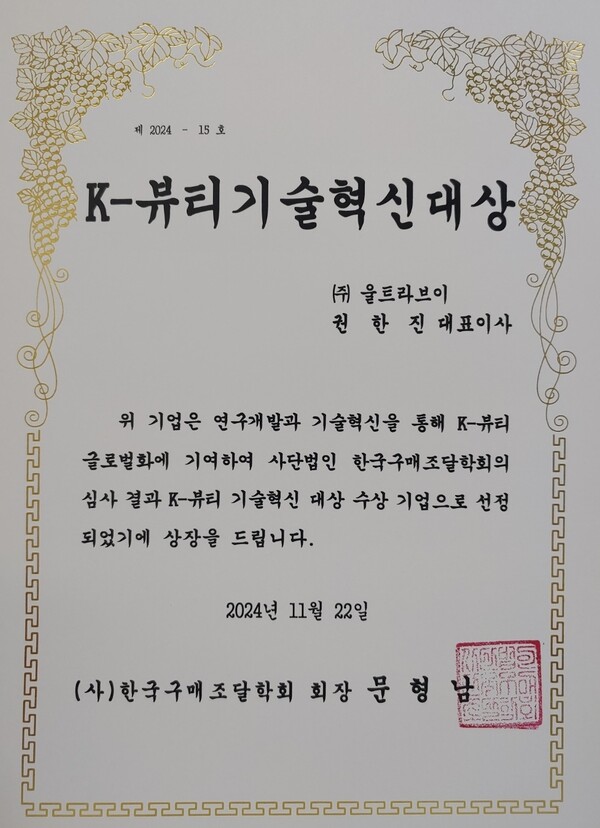 제 2024 - 15 호
K-뷰티기술혁신대상
㈜ 울트라브이
권 한 진 대표이사
위 기업은 연구개발과 기술혁신을 통해 K-뷰티
글로벌화에 기여하여 사단법인 한국구매조달학회의
심사 결과 K-뷰티 기술혁신 대상 수상 기업으로 선정
되었기에 상장을 드립니다.
2024년 11월 22일
(사)한국구매조달학회 회장 문 형 남